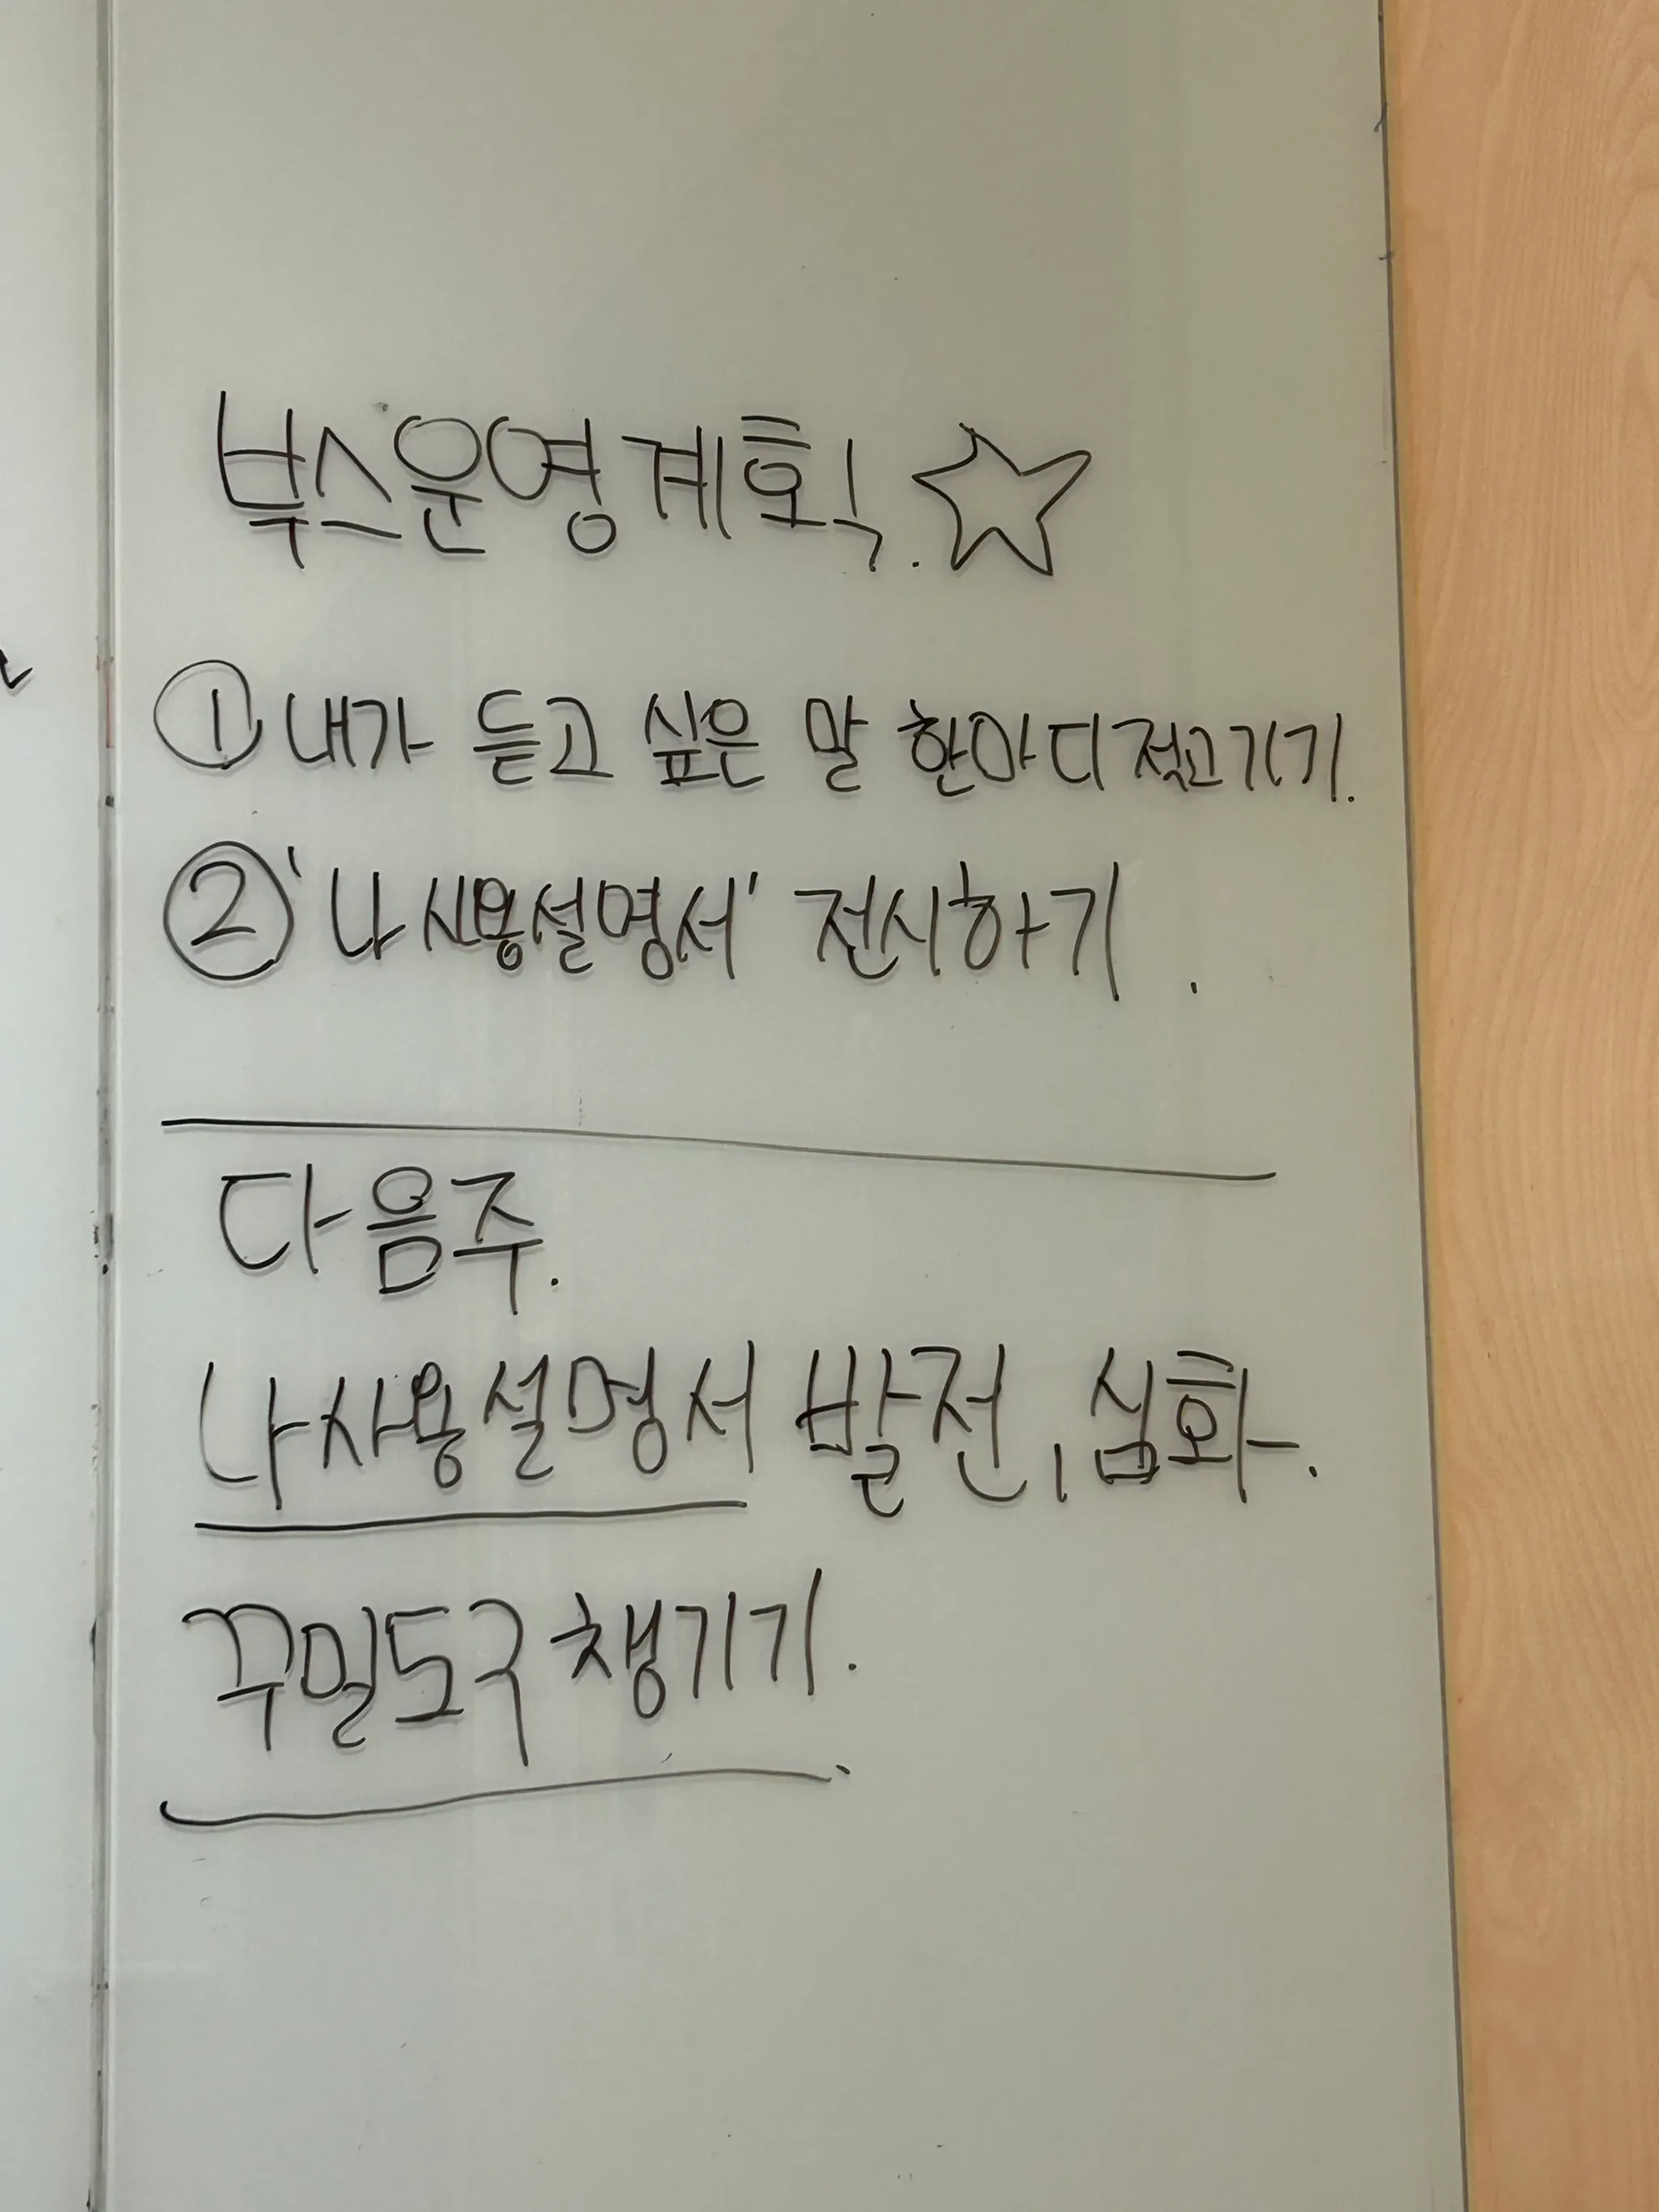 부스운영계획. ☆
① 내가 듣고 싶은 말 한마디 적고가기.
② '나 사용설명서' 전시하기.
다음주.
나사용설명서 발전, 심화.
꾸밀도구 챙기기.